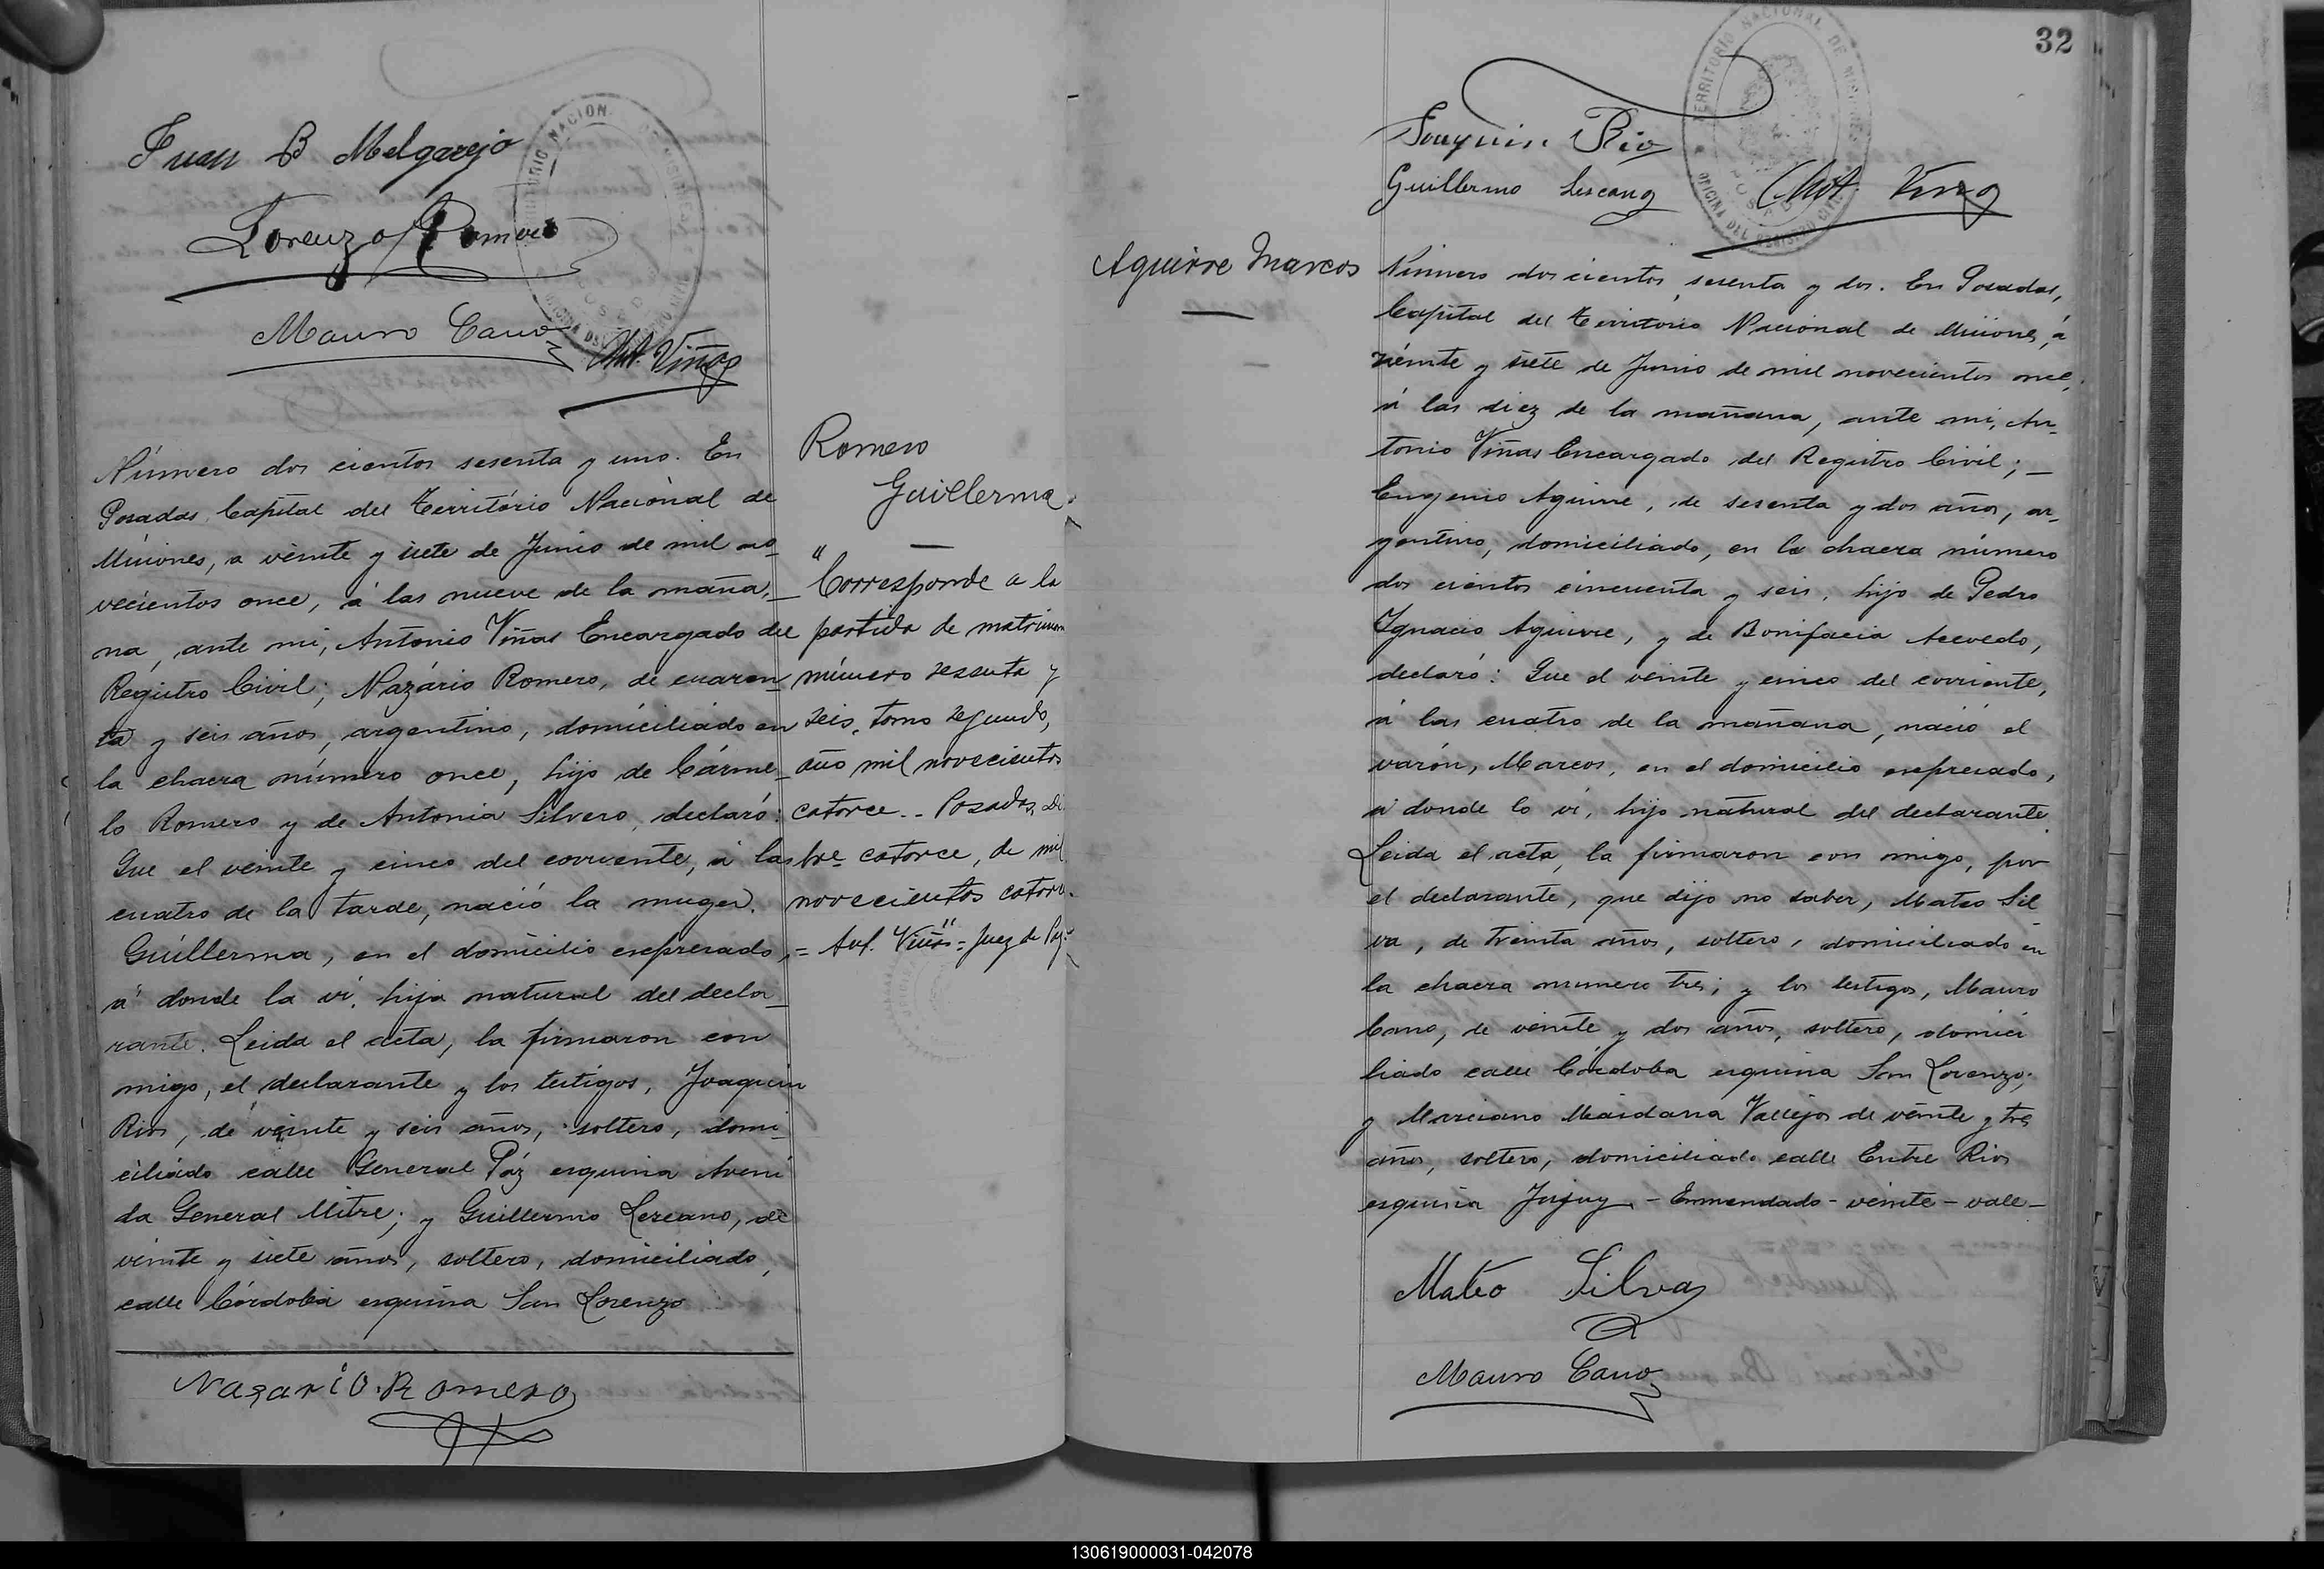 Juan B Melgarejo
Lorenzo Romero
Mauro Cano
Ant. Viñas
Número dos cientos sesenta y uno. En
Posadas, Capital del Território Nacional de
Misiones, a veinte y siete de Junio de mil no_
vecientos once, á las nueve de la maña_
na, ante mi, Antonio Viñas Encargado del
Registro Civil; Nazário Romero, de cuaren_
ta y seis años, argentino, domiciliado en
la chacra número once, hijo de Cárme_
lo Romero y de Antonia Silvero, declaró:
Que el veinte y cinco del corriente, á las
cuatro de la tarde, nació la muger.
Guillerma, en el domicilio expresado,
á donde la ví, hija natural del decla_
rante. Leida el acta, la firmaron con
migo, el declarante y los testigos, Joaquin
Rios, de veinte y seis años, soltero, domi_
ciliado calle General Páz esquina Aveni
da General Mitre; y Guillermo Lezcano, de
veinte y siete años, soltero, domiciliado,
calle Córdoba esquina San Lorenzo
Nazario Romero
Romero
Guillerma.
" Corresponde a la
partida de matrimon
número sesenta y
seis, tomo segundo,
año mil novecientos
catorce.. Posadas, Di
bre catorce, de mil
novecientos catorce.
= Ant. Viñas" = Juez de Paz
32
TERRITORIO NACIONAL DE MISIONES
POSADAS
OFICINA DEL REGISTRO CIVIL
Joaquin Rio
Guillermo Lescano
Ant. Viñas
Aguirre Marcos
Número dos cientos sesenta y dos. En Posadas,
Capital del Territorio Nacional de Misiones, á
veinte y siete de Junio de mil novecientos once,
á las diez de la mañana, ante mi, An_
tonio Viñas Encargado del Registro Civil; _
Eugenio Aguirre, de sesenta y dos años, ar_
gentino, domiciliado, en la chacra número
dos cientos cincuenta y seis, hijo de Pedro
Ygnacio Aguirre, y de Bonifacia Acevedo,
declaró: Que el veinte y cinco del corriente,
á las cuatro de la mañana, nació el
varón, Marcos, en el domicilio expresado,
á donde lo ví, hijo natural del declarante.
Leida el acta, la firmaron con migo, por
el declarante, que dijo no saber, Mateo Sil
va, de treinta años, soltero, domiciliado en
la chacra numero tres; y los testigos, Mauro
Cano, de veinte y dos años, soltero, domici
liado calle Córdoba esquina San Lorenzo;
y Marciano Maidana Vallejos de veinte y tres
años, soltero, domiciliado calle Entre Rios
esquina Jujuy. - Enmendado - veinte - vale -
Mateo Silva
Mauro Cano
130619000031-042078